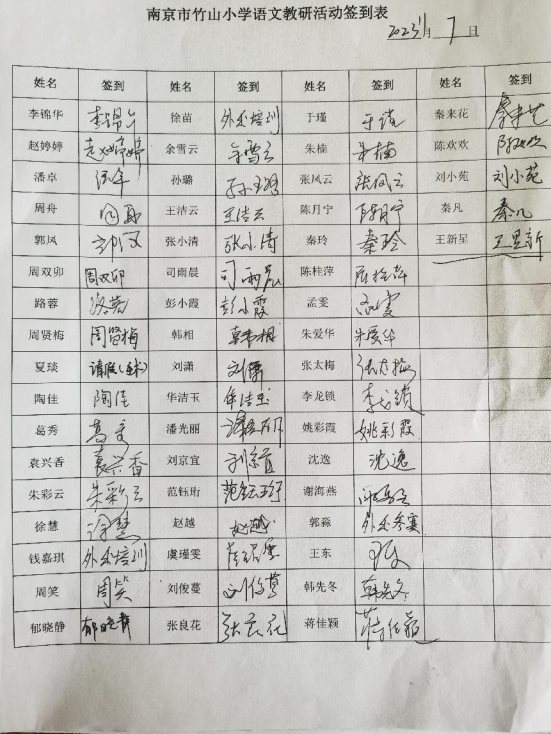 南京市竹山小学语文教研活动签到表
2023 11月 7 日
姓名 签到 姓名 签到 姓名 签到 姓名 签到
李锦华 李锦华 徐苗 外出培训 于瑾 于瑾 秦来花 秦来花
赵婷婷 赵婷婷 余雪云 余雪云 朱楠 朱楠 陈欢欢 陈欢欢
潘卓 孙璐 孙璐 张凤云 张凤云 刘小苑 刘小苑
周舟 周舟 王洁云 王洁云 陈月宁 陈月宁 秦凡 秦凡
郭凤 郭凤 张小清 张小清 秦玲 秦玲 王新星 王星新
周双卯 周双卯 司雨晨 司雨晨 陈桂萍 陈桂萍
路蓉 路蓉 彭小霞 彭小霞 孟雯 孟雯
周贤梅 周贤梅 韩相 韩相 朱爱华 朱爱华
夏琰 刘潇 刘潇 张太梅 张太梅
陶佳 陶佳 华洁玉 华洁玉 李龙锁 李龙锁
葛秀 葛秀 潘光丽 潘光丽 姚彩霞 姚彩霞
袁兴香 袁兴香 刘京宜 刘京宜 沈逸 沈逸
朱彩云 朱彩云 范钰珩 范钰珩 谢海燕
徐慧 徐慧 赵越 赵越 郭淼 外出参赛
钱嘉琪 外出培训 虞瑾雯 王东 王东
周笑 周笑 刘俊蔓 刘俊蔓 韩先冬 韩先冬
郁晓静 郁晓静 张良花 张良花 蒋佳颖 蒋佳颖